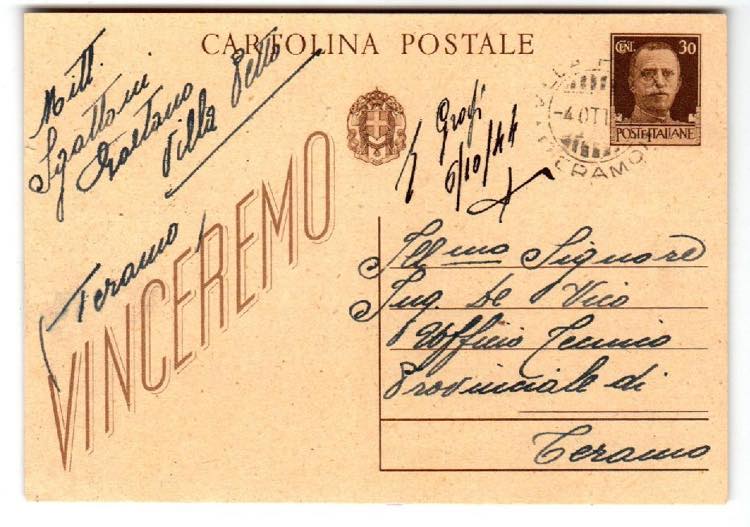 CARTOLINA POSTALE
CENT. 30
POSTE ITALIANE
-4 OTT
TERAMO
Mitt.
Sgattoni
Gaetano
Villa Petto
Teramo
VINCEREMO
6/10/44
Ill.mo Signore
Ing. De Vico
Ufficio Tecnico
Provinciale di
Teramo